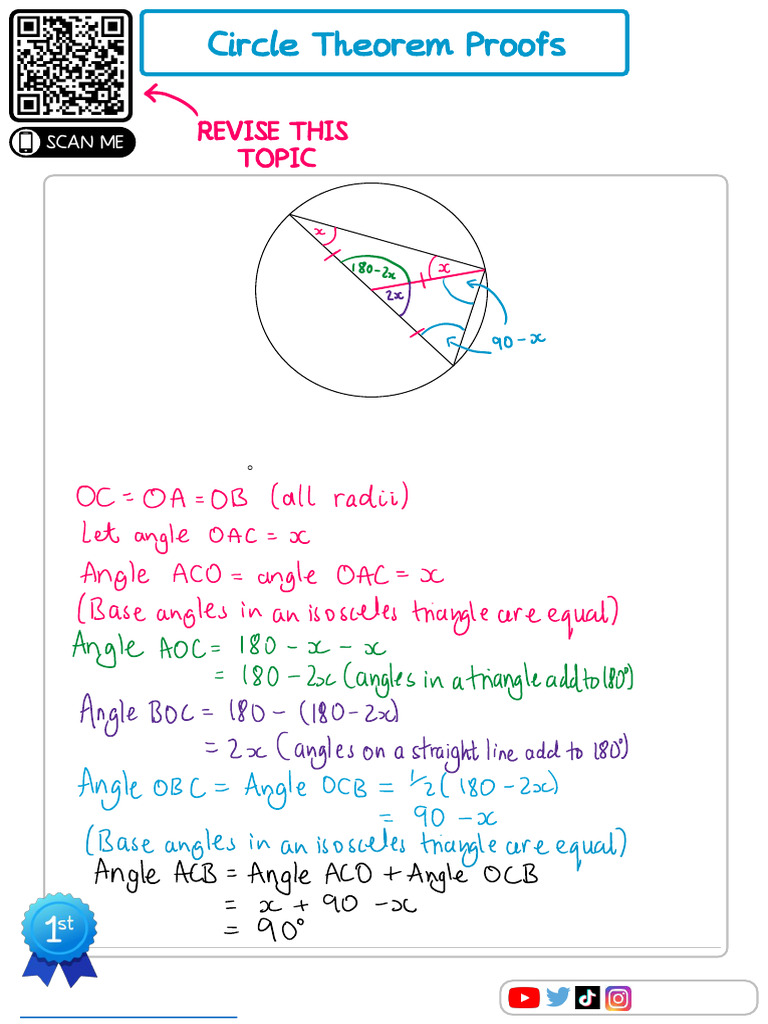 Circle Theorem Proofs
SCAN ME
REVISE THIS
TOPIC
x
180-2x
x
2x
90-x
OC = OA = OB (all radii)
Let angle OAC = x
Angle ACO = angle OAC = x
(Base angles in an isosceles triangle are equal)
Angle AOC = 180 - x - x
= 180 - 2x (angles in a triangle add to 180°)
Angle BOC = 180 - (180-2x)
= 2x (angles on a straight line add to 180°)
Angle OBC = Angle OCB = 1/2(180 - 2x)
= 90 - x
(Base angles in an isosceles triangle are equal)
Angle ACB = Angle ACO + Angle OCB
= x + 90 - x
= 90°
1st